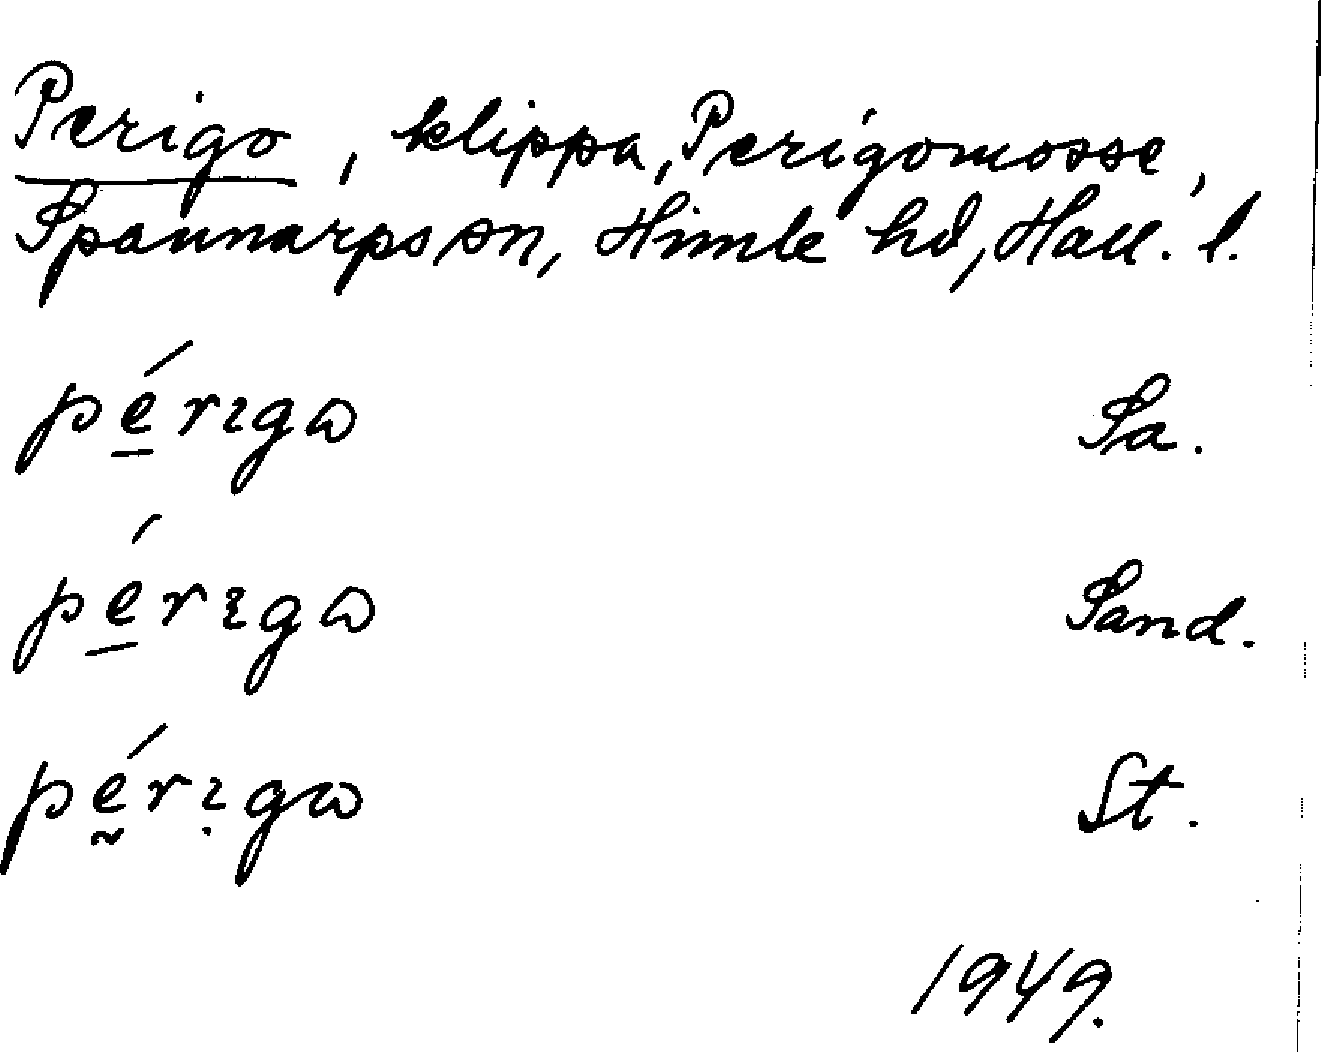 Perigo, klippa, Perigomosse,
Spannarps sn, Himle hd, Hall. l.
pérɪgɷ Sa.
pérɪgɷ Sand.
pérɪgɷ St.
1949.